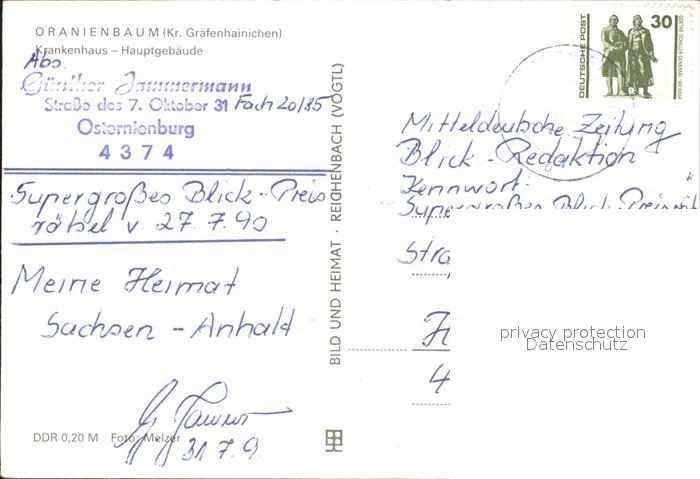 ORANIENBAUM (Kr. Gräfenhainichen)
Krankenhaus – Hauptgebäude
Abs.
Günther Jammermann
Straße des 7. Oktober 31 Fach 20/35
Osternienburg
4374
Supergroßes Blick-Preis
rätsel v. 27.7.90
Meine Heimat
Sachsen - Anhalt
31.7.9
DDR 0,20 M Foto: Melzer
BILD UND HEIMAT · REICHENBACH (VOGTL)
DEUTSCHE POST
30
GOETHE-SCHILLER-DENKMAL · WEIMAR
Mitteldeutsche Zeitung
Blick - Redaktion
Kennwort:
Supergroßes Blick-Preisrät
Stra
4
privacy protection
Datenschutz